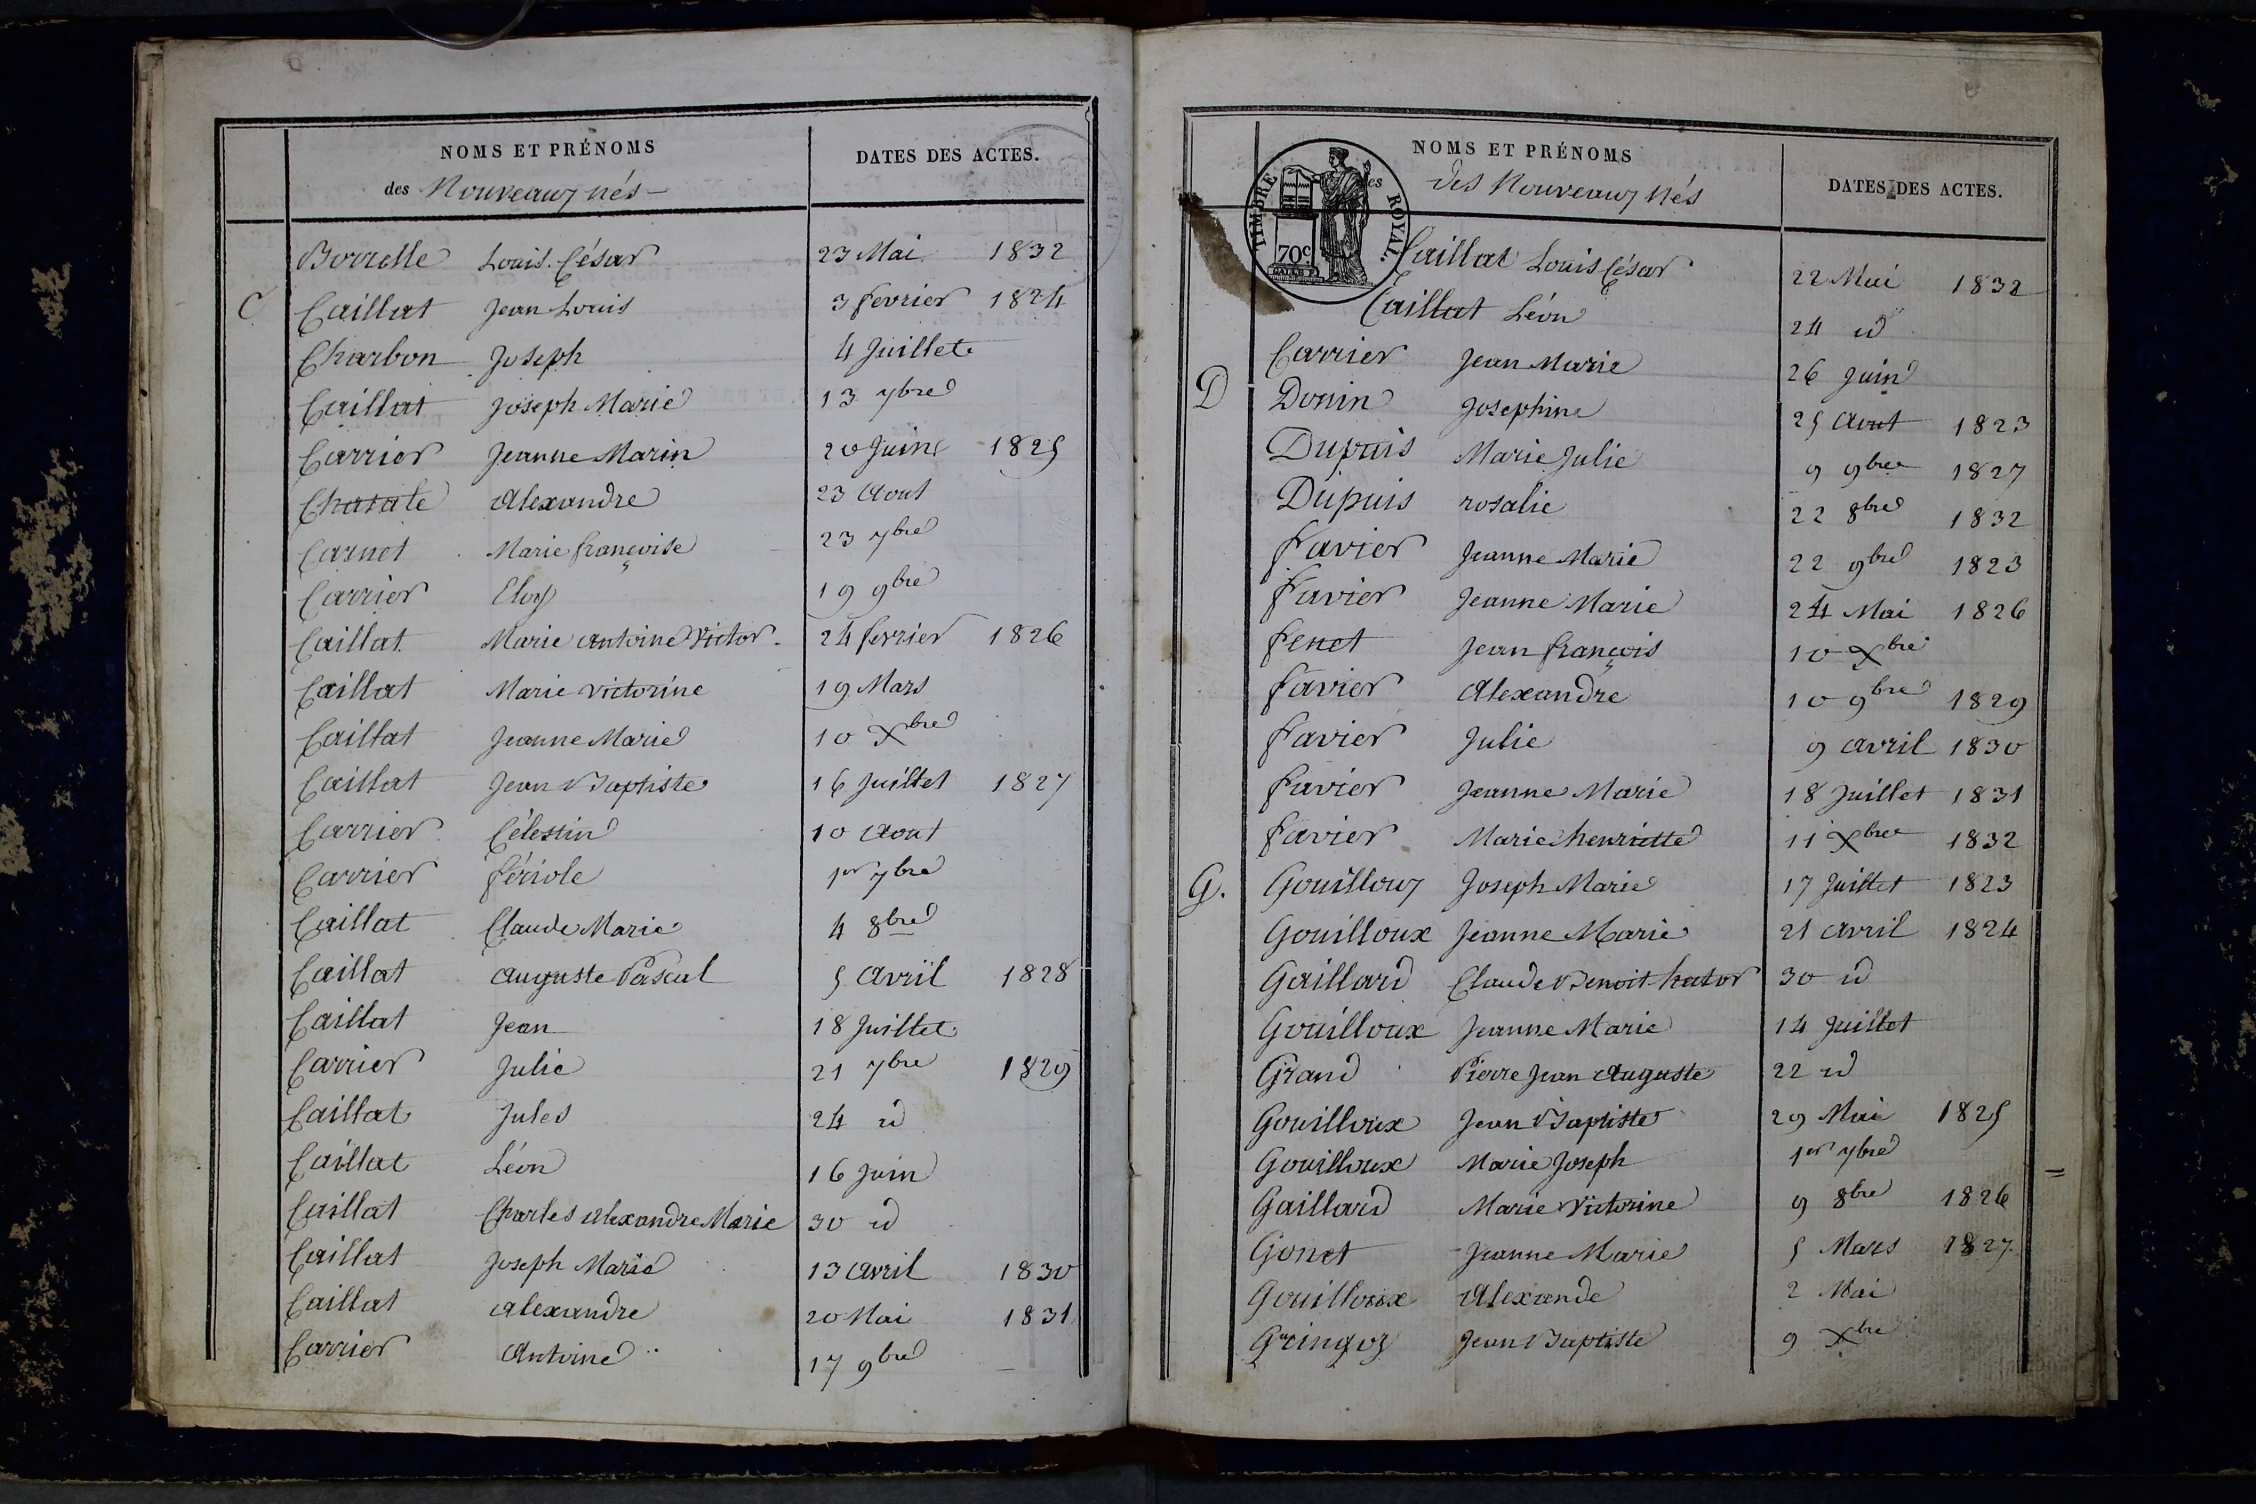 NOMS ET PRÉNOMS
des Nouveaux nés
DATES DES ACTES.
Borrelle Louis César 23 Mai 1832
C Caillat Jean Louis 3 fevrier 1824
Charbon Joseph 4 Juillet
Caillat Joseph Marie 13 7bre
Carrier Jeanne Marin 20 Juin 1825
Alexandre 23 Aout
Carnet Marie françoise 23 7bre
Carrier Eloy 19 9bre
Caillat Marie Antoine Victor 24 fevrier 1826
Caillat Marie Victorine 19 Mars
Caillat Jeanne Marie 10 Xbre
Caillat Jean Baptiste 16 Juillet 1827
Carrier Célestin 10 Aout
Carrier fériole 1er 7bre
Caillat Claude Marie 4 8bre
Caillat Auguste Pascal 5 Avril 1828
Caillat Jean 18 Juillet
Carrier Julie 21 7bre 1829
Caillat Jules 24 id
Caillat Léon 16 Juin
Caillat Charles Alexandre Marie 30 id
Caillat Joseph Marie 13 Avril 1830
Caillat Alexandre 20 Mai 1831
Carrier Antoine 17 9bre
TIMBRE ROYAL.
70c
NOMS ET PRÉNOMS
des Nouveaux nés
DATES DES ACTES.
Caillat Louis César 22 Mai 1832
Caillat Léon 24 id
Carrier Jean Marie 26 Juin
D Donin Josephine 25 Aout 1823
Dupuis Marie Julie 9 9bre 1827
Dupuis rosalie 22 8bre 1832
Favier Jeanne Marie 22 9bre 1823
Favier Jeanne Marie 24 Mai 1826
fenet Jean françois 10 Xbre
favier Alexandre 10 9bre 1829
favier Julie 9 Avril 1830
favier Jeanne Marie 18 Juillet 1831
favier Marie henriette 11 Xbre 1832
G. Gouilloux Joseph Marie 17 Juillet 1823
Gouilloux Jeanne Marie 21 Avril 1824
Gaillard Claude Benoit hector 30 id
Gouilloux Jeanne Marie 14 Juillet
Grand Pierre Jean Auguste 22 id
Gouilloux Jean Baptiste 29 Mai 1825
Gouilloux Marie Joseph 1er 7bre
Gaillard Marie Victorine 9 8bre 1826
Gonet Jeanne Marie 5 Mars 1827
Gouilloux Alexande 2 Mai
Gringoz Jean Baptiste 9 Xbre